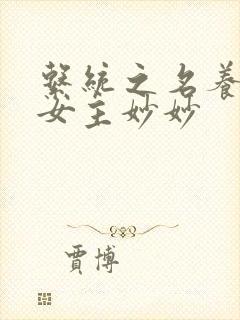 繫統之名養
女主妙妙
賈博